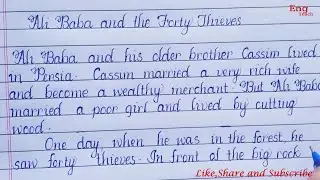 Eng
Teach
Ali Baba and the Forty Thieves
Ali Baba and his older brother Cassim lived
in Persia. Cassim married a very rich wife
and become a wealthy merchant. But Ali Baba
married a poor girl and lived by cutting
wood.
One day, when he was in the forest, he
saw forty thieves. In front of the big rock
Like,Share and Subscribe